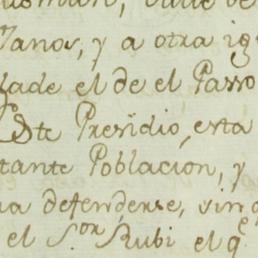 Janos, y a otra ig
lade el de el Passo
Este Presidio, esta
tante Poblacion, y
na defenderse, sin q
el S.or Rubi el q.e